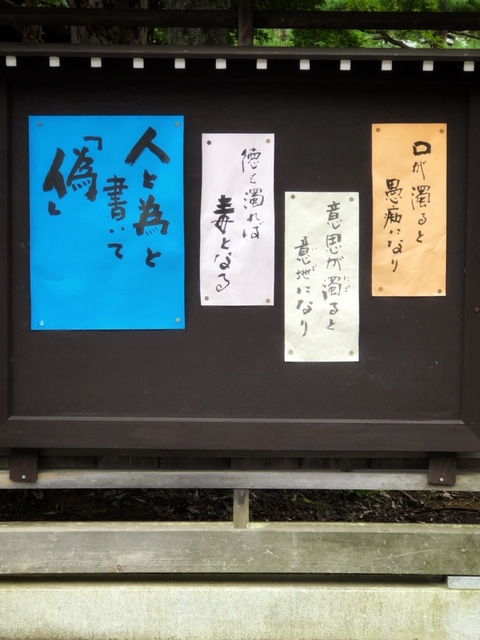 口が濁ると
愚痴になり
意思が濁ると
意地になり
徳も濁れば
毒となる
人と為と
書いて
「偽」